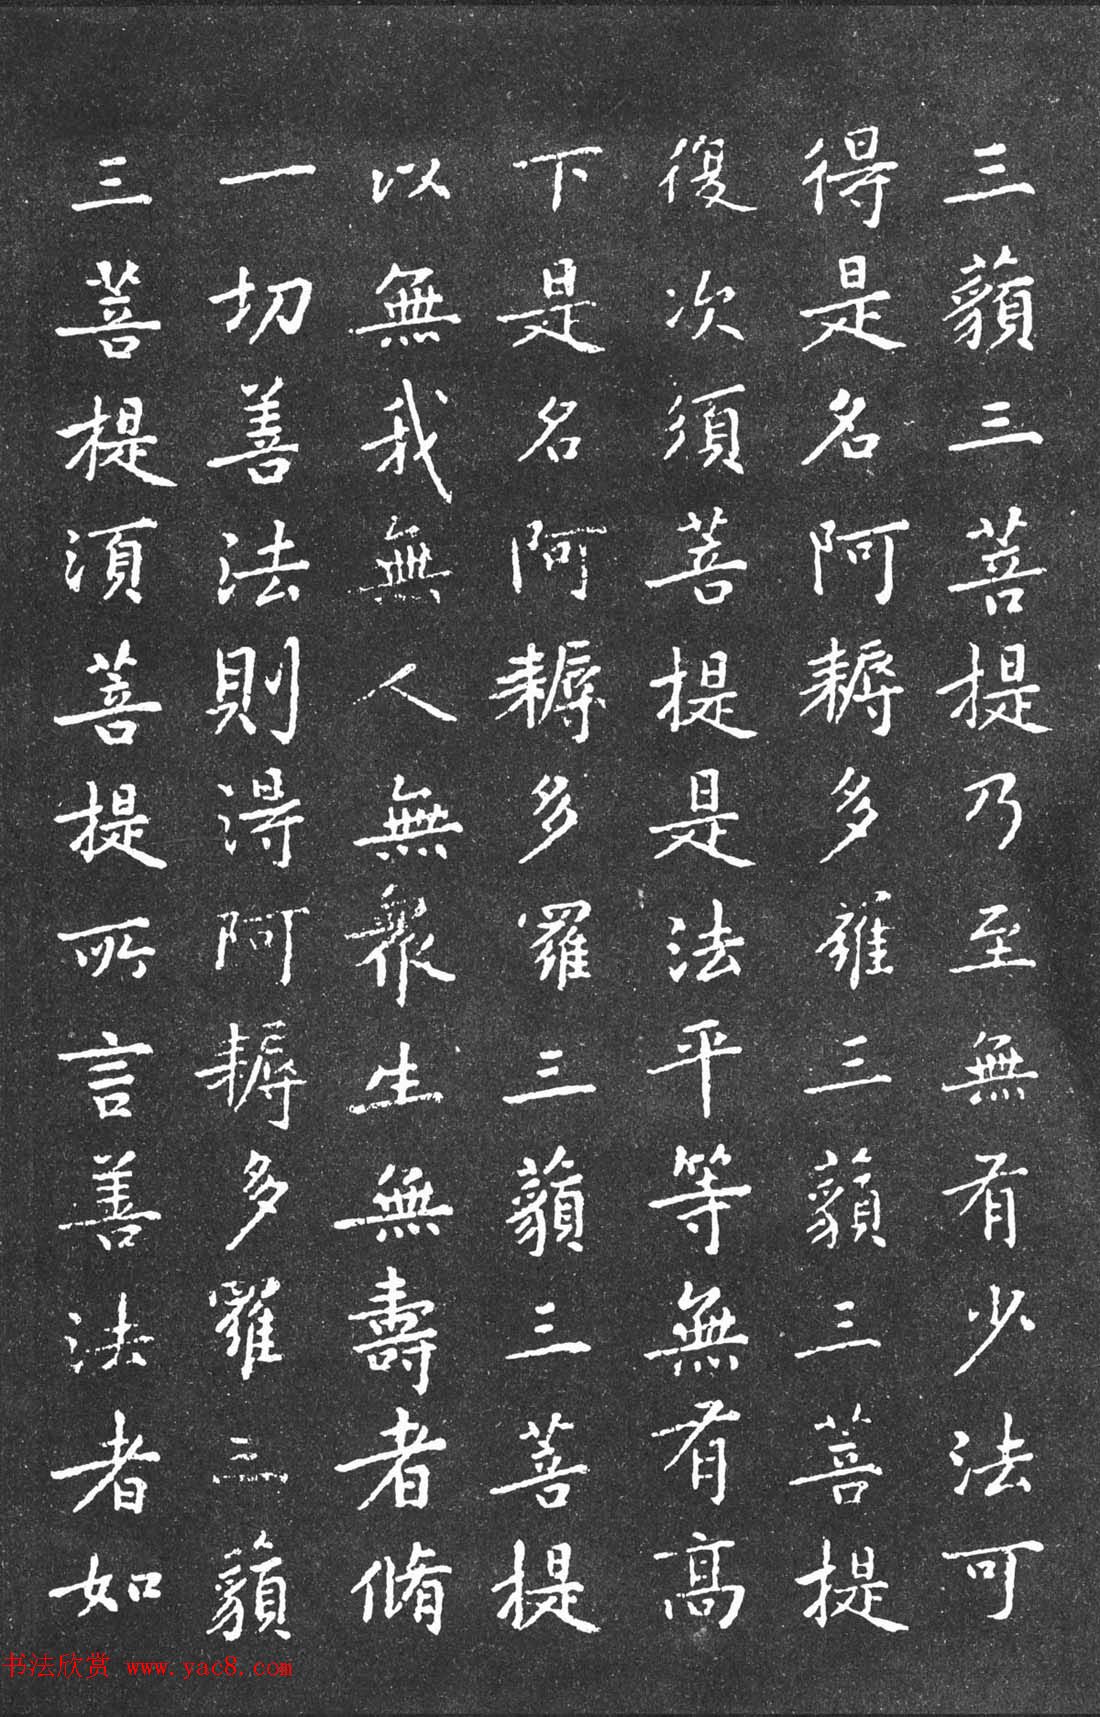 三藐三菩提乃至無有少法可
得是名阿耨多羅三藐三菩提
復次須菩提是法平等無有高
下是名阿耨多羅三藐三菩提
以無我無人無眾生無壽者脩
一切善法則得阿耨多羅三藐
三菩提須菩提所言善法者如
书法欣赏 www.yac8.com